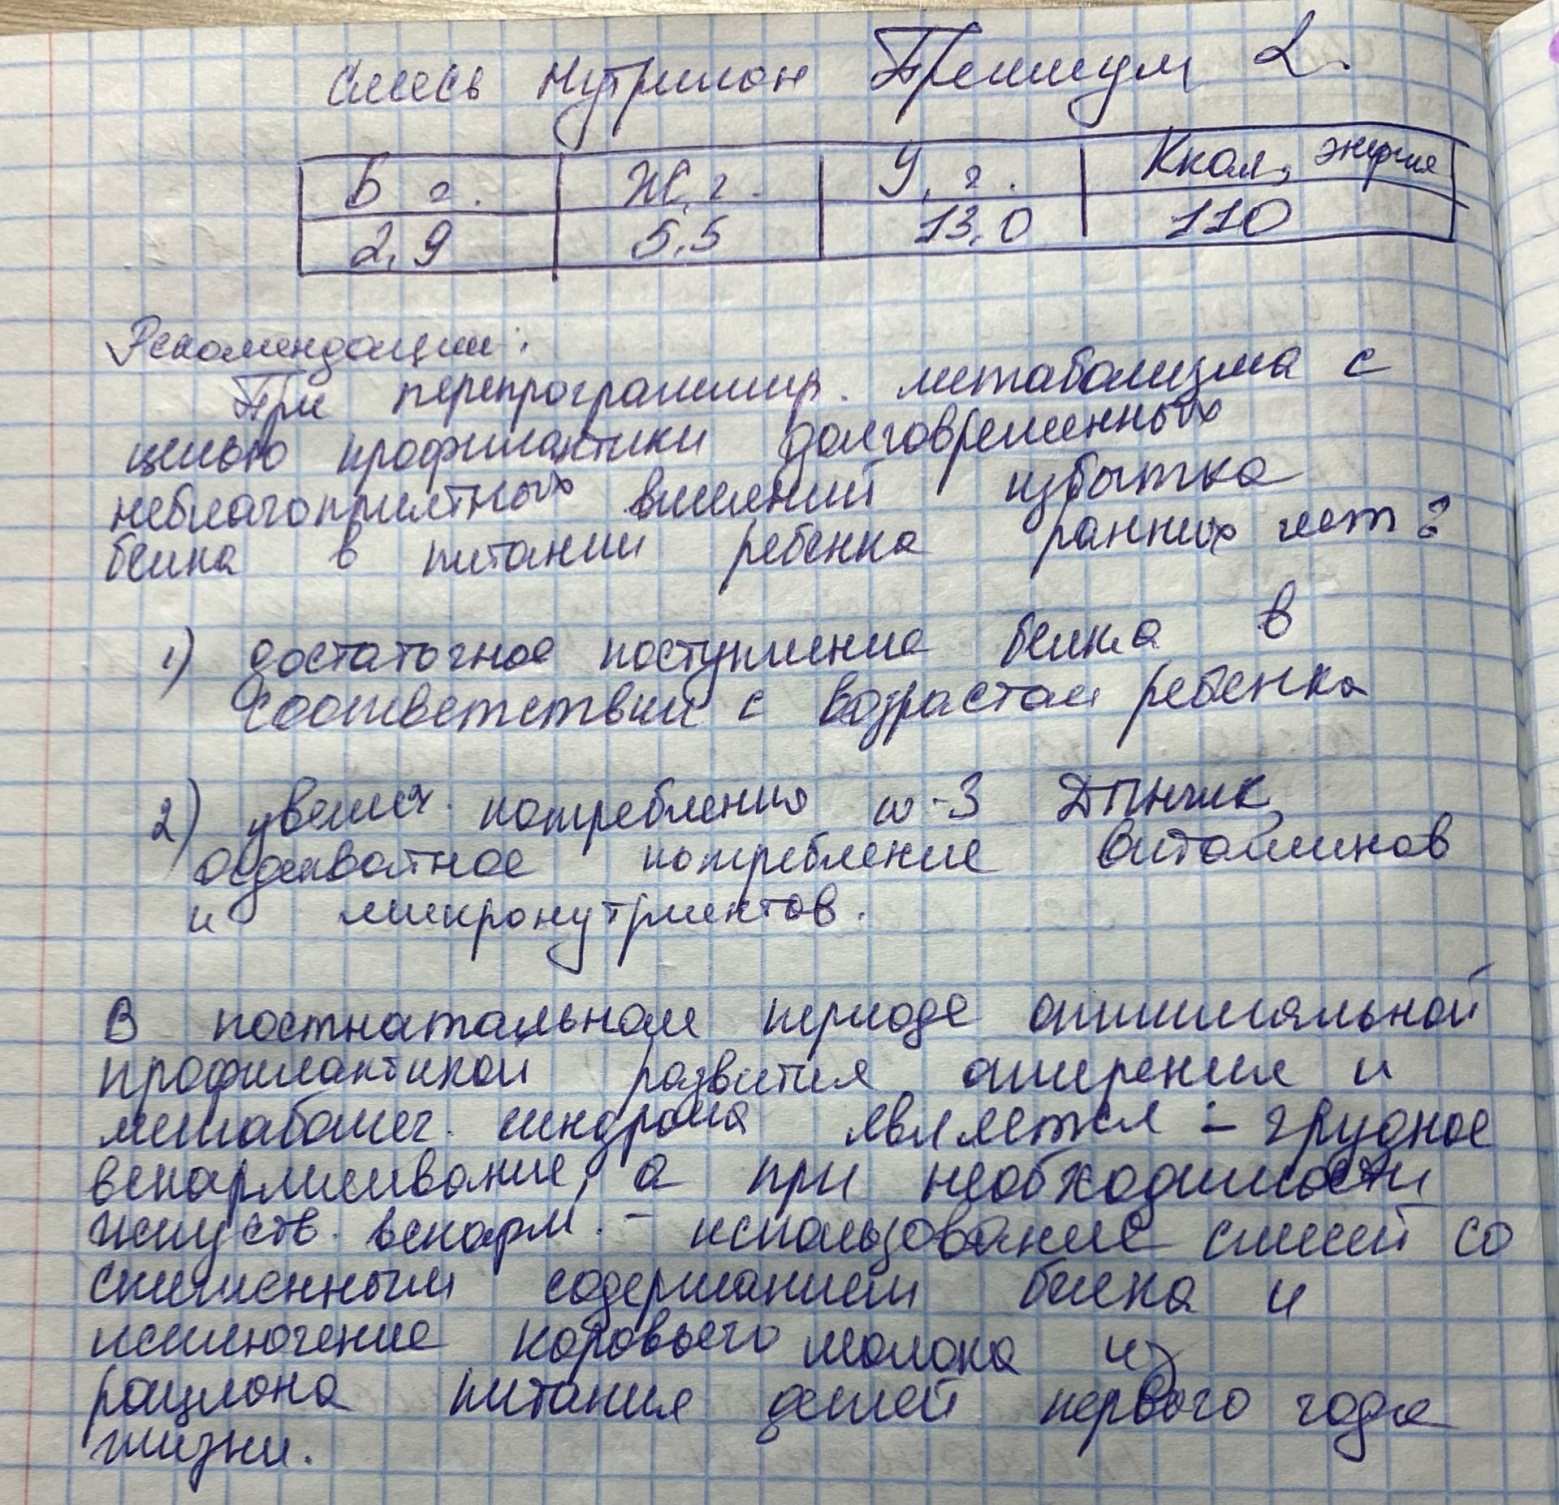 Смесь Нутрилон Премиум 2.
Б г. Ж, г. У, г. Ккал, энергия
2,9 5,5 13,0 110
Рекомендации:
При перепрограммир. метаболизма с
целью профилактики долговременных
неблагоприятных влияний избытка
белка в питании ребенка ранних лет:
1) достаточное поступление белка в
соответствии с возрастом ребенка
2) увелич. потребления ω-3 ДПНЖК,
адекватное потребление витаминов
и микронутриентов.
В постнатальном периоде оптимальной
профилактикой развития ожирения и
метаболич. синдрома является - грудное
вскармливание, а при необходимости
искуств. вскарм. - использование смесей со
сниженным содержанием белка и
исключение коровьего молока из
рациона питания детей первого года
жизни.